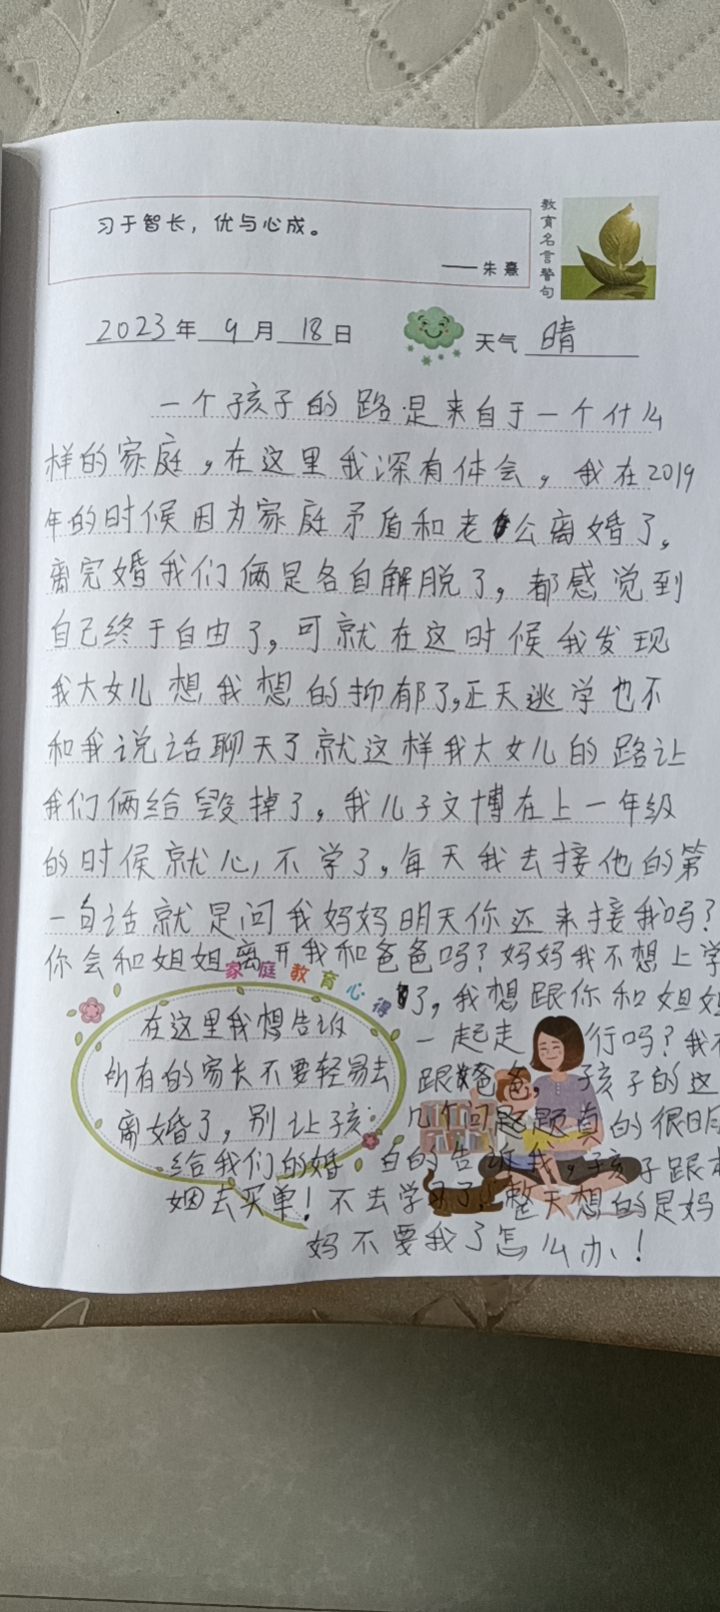 习于智长，优与心成。
——朱熹
教育名言警句
2023年9月18日
天气 晴
一个孩子的路是来自于一个什么
样的家庭，在这里我深有体会，我在2019
年的时候因为家庭矛盾和老公离婚了，
离完婚我们俩是各自解脱了，都感觉到
自己终于自由了，可就在这时候我发现
我大女儿想我想的抑郁了，正天逃学也不
和我说话聊天了就这样我大女儿的路让
我们俩给毁掉了，我儿子文博在上一年级
的时候就心不学了，每天我去接他的第
一句话就是问我妈妈明天你还来接我吗？
你会和姐姐离开我和爸爸吗？妈妈我不想上学
了，我想跟你和姐姐
一起走 行吗？我不
跟爸爸，孩子的这
几个问题题真的很明
白的告诉我，孩子跟本
不去学习了！整天想的是妈
妈不要我了怎么办！
家庭教育心得
在这里我想告诉
所有的家长不要轻易去
离婚了，别让孩
给我们的婚
姻去买单！